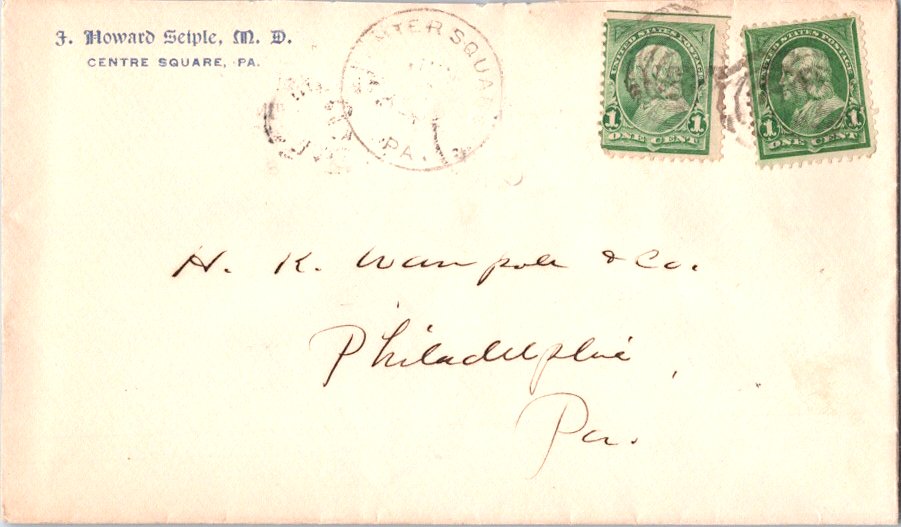 J. Howard Seiple, M. D.
CENTRE SQUARE, PA.
CENTER SQUARE
PA.
UNITED STATES POSTAGE
1 1
ONE CENT
UNITED STATES POSTAGE
1 1
ONE CENT
H. K. Wampole & Co.
Philadelphia,
Pa.